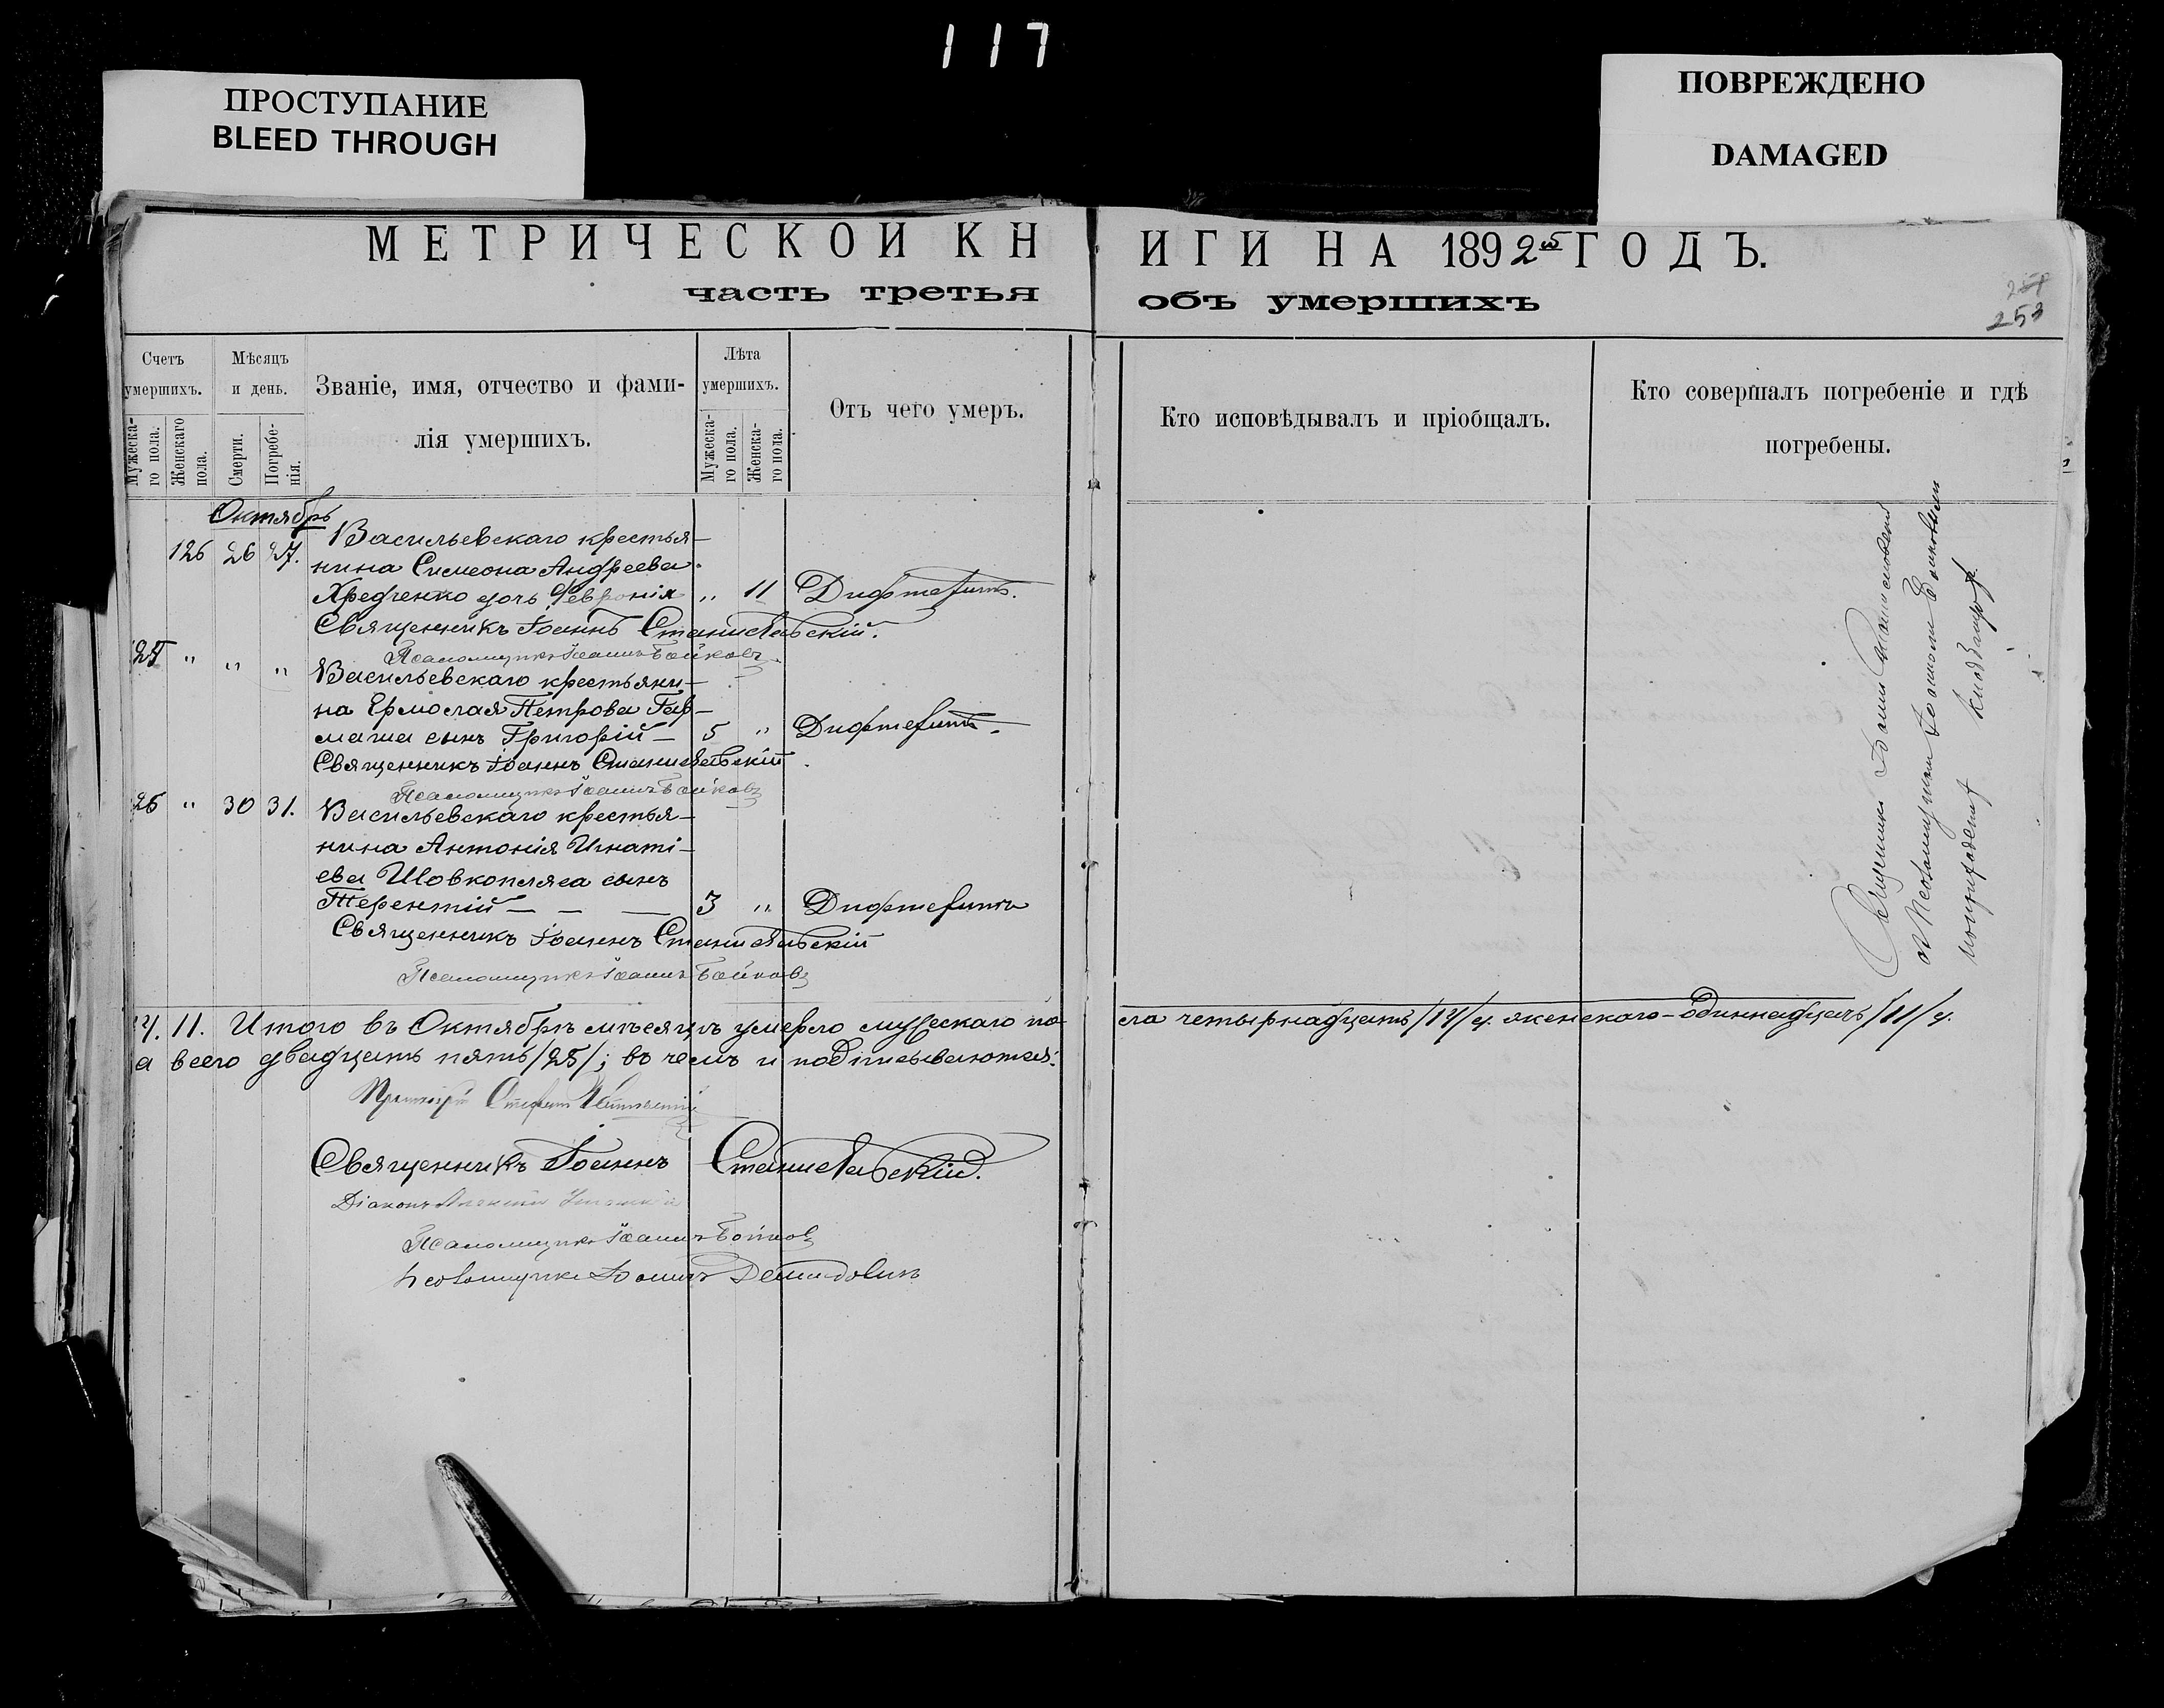 117
ПРОСТУПАНИЕ
BLEED THROUGH
ПОВРЕЖДЕНО
DAMAGED
МЕТРИЧЕСКОЙ КНИГИ НА 1892й ГОДЪ.
часть третья объ умершихъ
253
Счетъ умершихъ.
Мужеска-го пола.
Женскаго пола.
Мѣсяцъ и день.
Смерти.
Погребе-нія.
Званіе, имя, отчество и фами-
лія умершихъ.
Лѣта умершихъ.
Мужеска-го пола.
Женска-го пола.
Отъ чего умеръ.
Кто исповѣдывалъ и пріобщалъ.
Кто совершалъ погребеніе и гдѣ
погребены.
Октябрь
126 26 27. Васильевскаго крестья-
нина Симеона Андреева
дочь Феронія „ 11 Дифтеритъ.
Священникъ Іоаннъ Станиславскій.
Псаломщикъ Іоаннъ Бойковъ
25 " " " Васильевскаго крестьяни-
на Ермолая Петрова Гар-
маша сынъ Григорій — 5 " Дифтеритъ.
Священникъ Іоаннъ Станиславскій.
Псаломщикъ Іоаннъ Бойковъ
26 " 30 31. Васильевскаго крестья-
нина Антонія Игнаті-
ева Шовкопляса сынъ
Терентій — — — 3 " Дифтеритъ
Священникъ Іоаннъ Станиславскій
Псаломщикъ Іоаннъ Бойковъ
Священникъ Іоаннъ Станиславскій
съ Псаломщикомъ Іоанномъ Бойковымъ
на приходскомъ кладбищѣ.
14. 11. Итого въ Октябрѣ мѣсяцѣ умерло мужескаго по-ла четырнадцать /14/ ч. женскаго – одиннадцать /11/ ч.
а всего двадцать пять /25/; въ чемъ и подписываются:
Священникъ Іоаннъ Станиславскій.
Діаконъ
Псаломщикъ Іоаннъ Бойковъ
Псаломщикъ Іоаннъ Демидовичъ